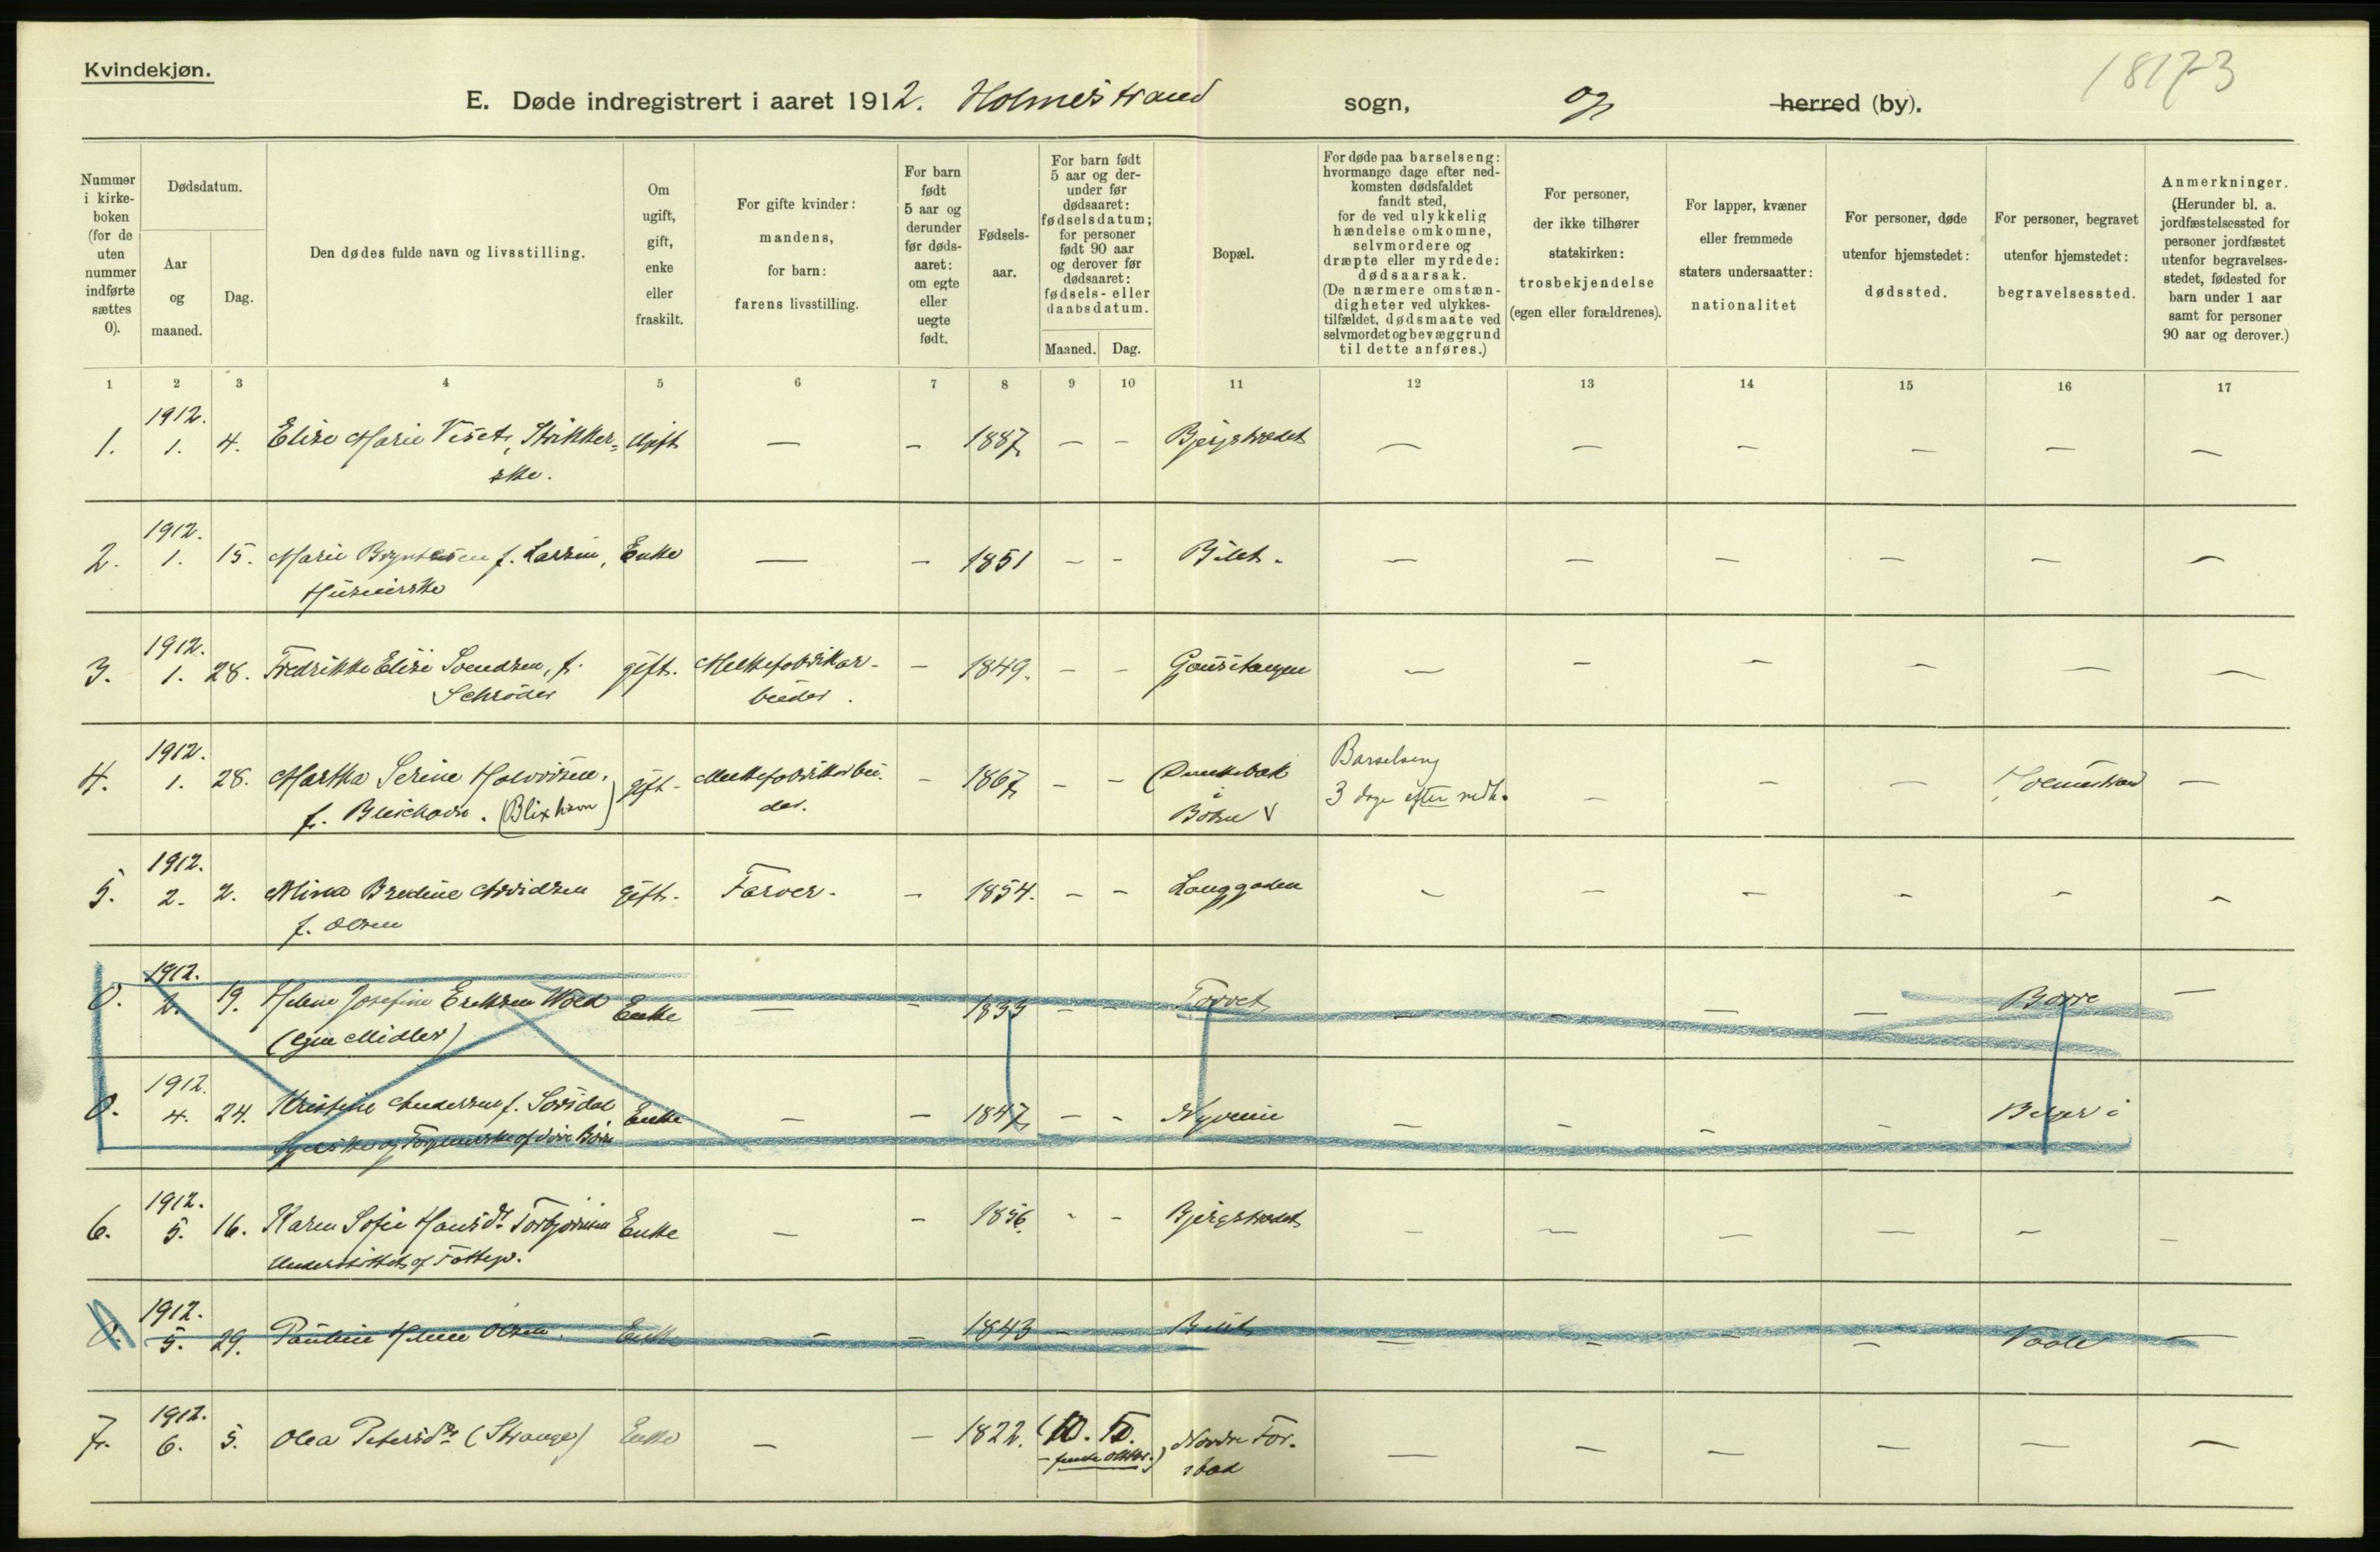 Kvindekjøn.
18173
E. Døde indregistrert i aaret 1912. Holmestrand sogn, og herred (by).
Nummer i kirkeboken (for de uten nummer indførte sættes 0).
Dødsdatum.
Aar og maaned.
Dag.
Den dødes fulde navn og livsstilling.
Om ugift, gift, enke eller fraskilt.
For gifte kvinder: mandens, for barn: farens livsstilling.
For barn født 5 aar og derunder før dødsaaret: om egte eller uegte født.
Fødselsaar.
For barn født 5 aar og derunder før dødsaaret: fødselsdatum; for personer født 90 aar og derover før dødsaaret: fødsels- eller daabsdatum.
Maaned. Dag.
Bopæl.
For døde paa barselseng: hvormange dage efter nedkomsten dødsfaldet fandt sted, for de ved ulykkelig hændelse omkomne, selvmordere og dræpte eller myrdede: dødsaarsak. (De nærmere omstændigheter ved ulykkestilfældet, dødsmaate ved selvmordet og bevæggrund til dette anføres.)
For personer, der ikke tilhører statskirken: trosbekjendelse (egen eller forældrenes).
For lapper, kvæner eller fremmede staters undersaatter: nationalitet
For personer, døde utenfor hjemstedet: dødssted.
For personer, begravet utenfor hjemstedet: begravelsessted.
Anmerkninger. (Herunder bl. a. jordfæstelsessted for personer jordfæstet utenfor begravelsesstedet, fødested for barn under 1 aar samt for personer 90 aar og derover.)
1 2 3 4 5 6 7 8 9 10 11 12 13 14 15 16 17
1912.
1. 1. 4. Elise Marie Viset, Strikker= Ugift — — 1887 — — Bjergstrædet — — — — — —
ske.
1912.
2. 1. 15. Marie Bryntesen f. Larsen, Enke — — 1851 — — Bilet. — — — — — —
Huseierske
1912.
3. 1. 28. Fredrikke Elise Svendsen, f. gift. Melkefabrikar- — 1849. — — Gausetangen — — — — — —
Schrøder beider.
1912.
4. 1. 28. Martha Serine Halvorsen, gift. Melkefabrikarbei- — 1867 — — i Botne Barselseng — — — Holmestrand —
f. (Blixhavn) der. 3 dage efter nedk.
1912.
5. 2. 2. Mina Bredine Arvidsen gift. Farver. — 1854. — — Langgaden — — — — — —
f. Olsen
1912.
0. 2. 19. Helene Josefine Eriksen Wold Enke — — 1833 — — Torvet — — — — Borre —
(egne Midler)
1912.
0. 4. 24. Kristine Andersen f. Sørsdal Enke — — 1847 — — Nyveien — — — —
af sine Børn
1912.
6. 5. 16. Karen Sofie Hansdr. Torbjørnsen Enke — — 1856. — — Bjergstrædet — — — — — —
Understøttet af Fattigv.
1912.
0. 5. 29. Pauline Helene Olsen. Enke — — 1843 — — Bilet — — — — Vaale —
1912.
7. 6. 5. Olea Petersdr. (Strange) Enke — — 1822. (10. 5. Nordre For- — — — — — —
stad